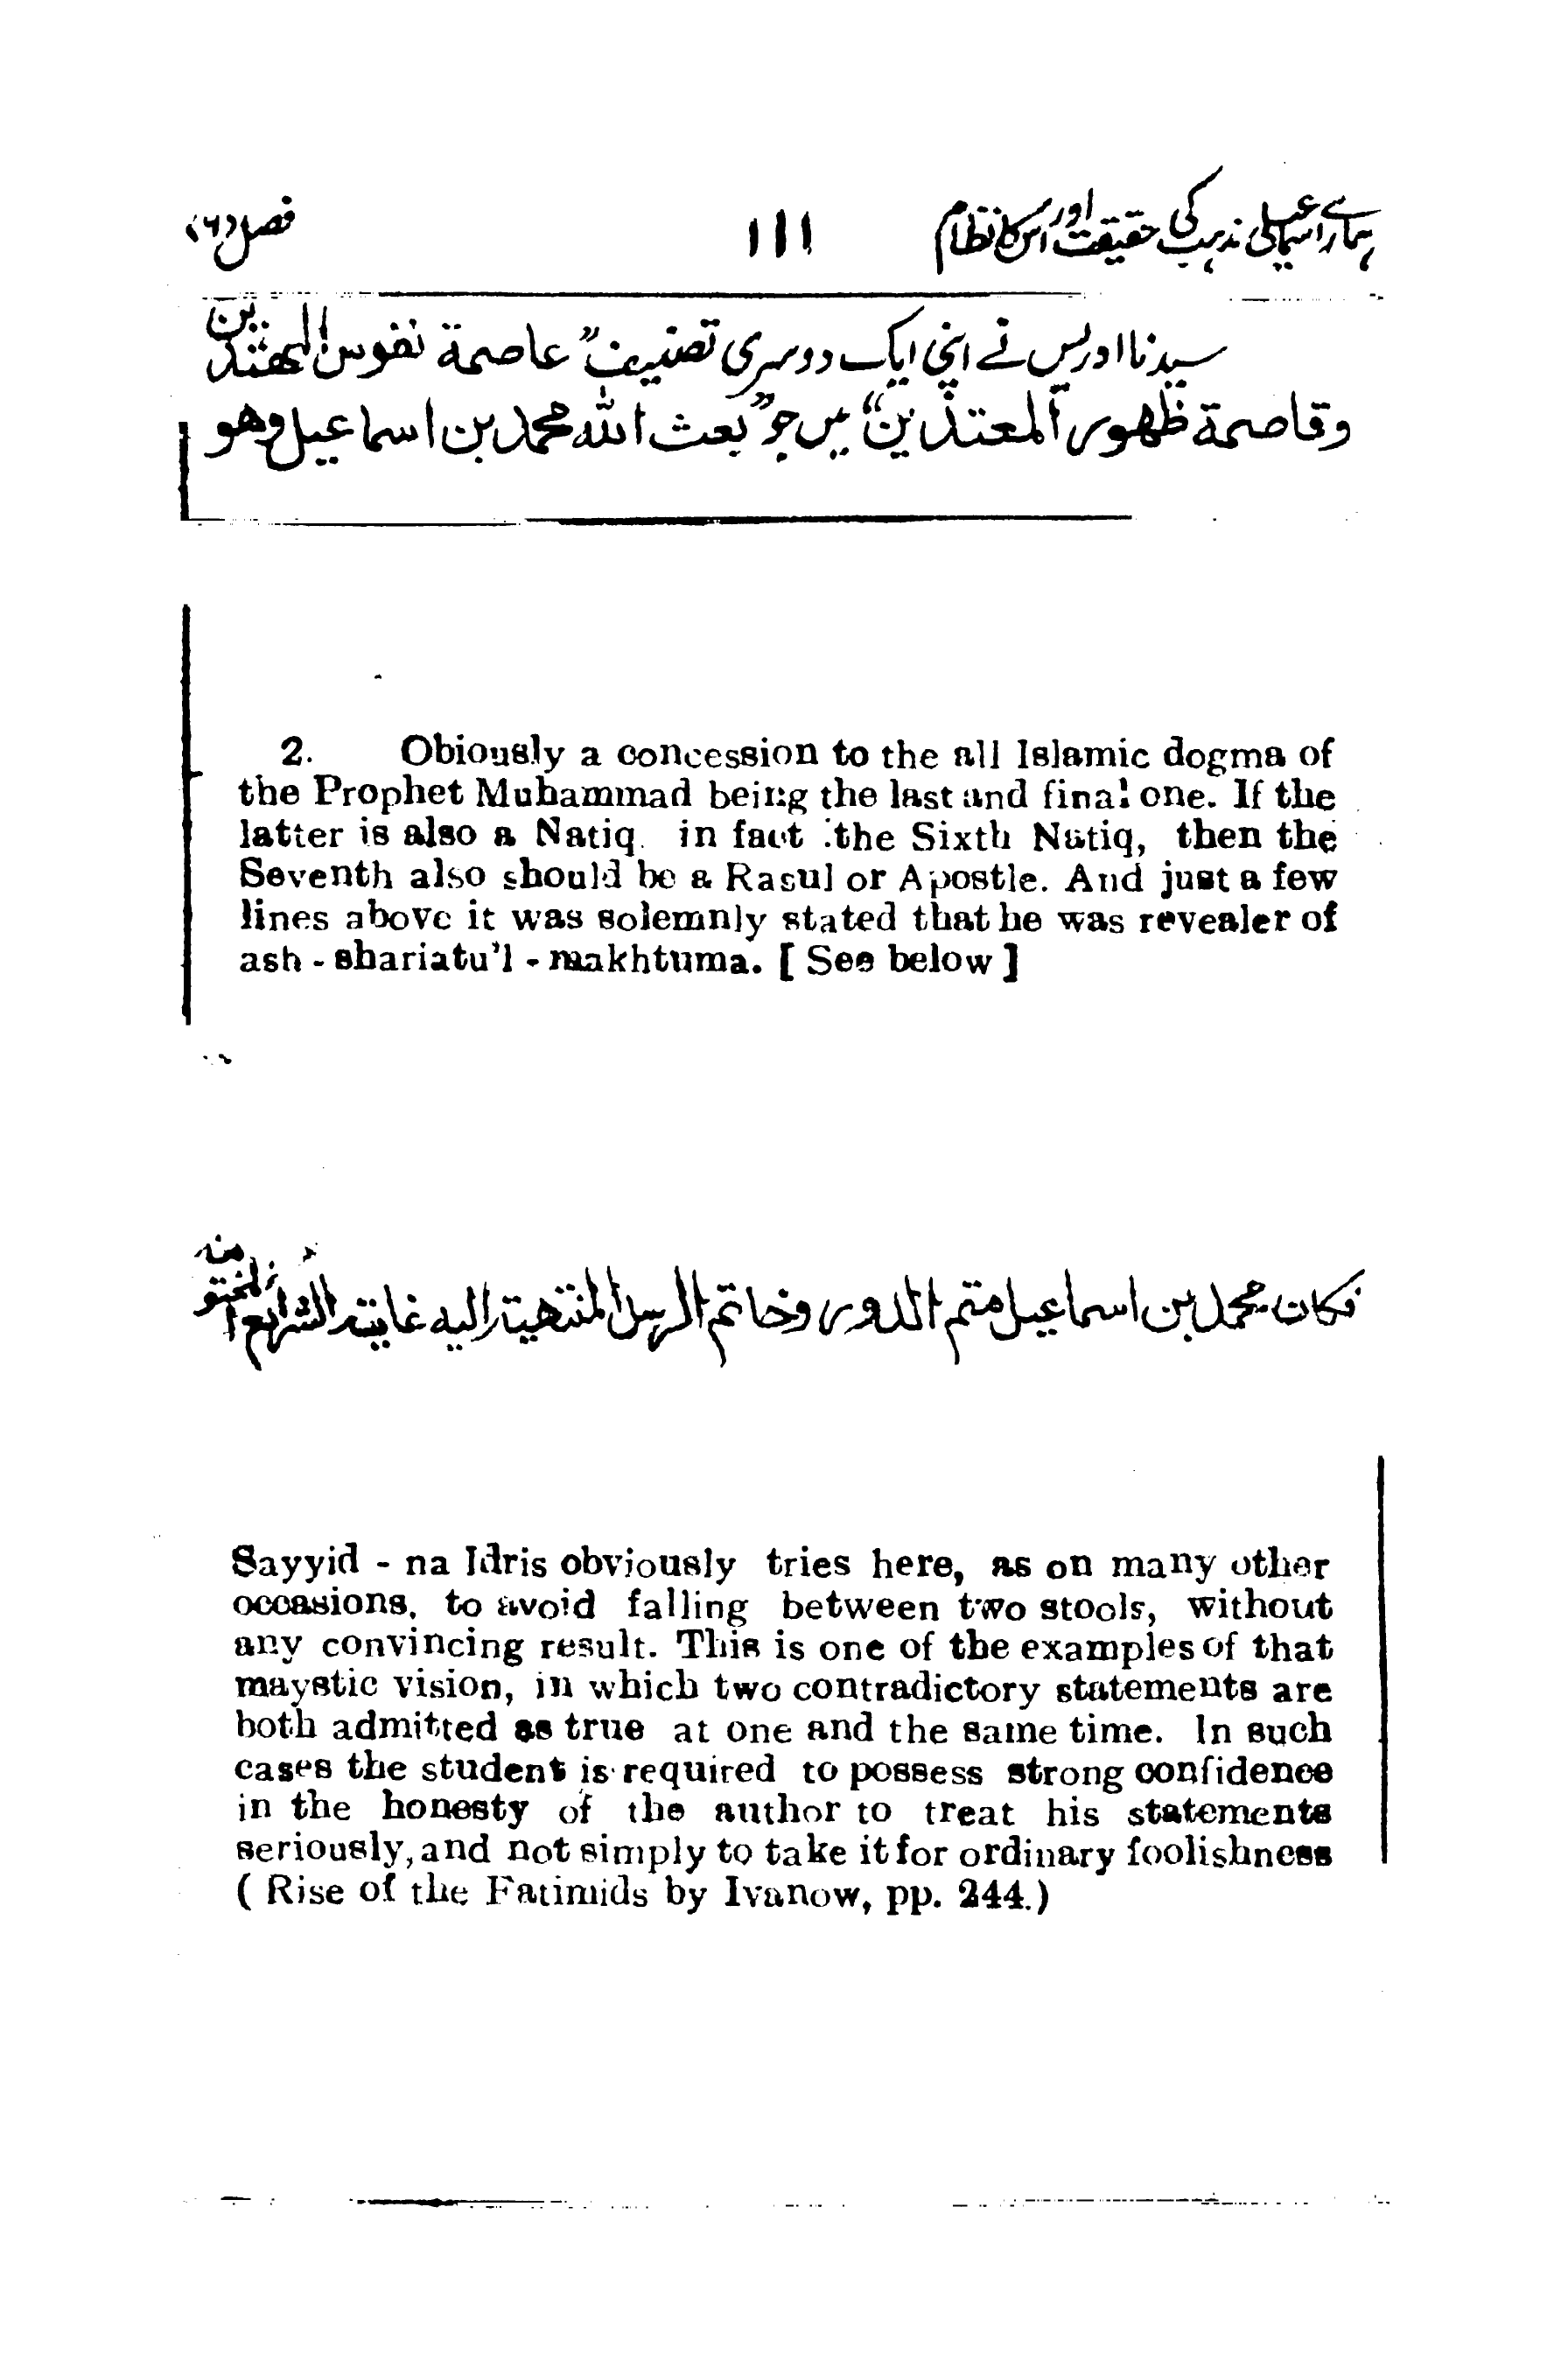 ہمارے اسماعیلی مذہب کی حقیقت اور اس کا نظام
۱۱۱
فصل (۶)
سیدنا ادریس نے اپنی ایک دوسری تصنیف "عاصمة نفوس المهتدین
وقاصمة ظهور المعتدین" میں جو "بعث الله محمد بن اسماعیل وهو
2. Obiously a concession to the all Islamic dogma of
the Prophet Muhammad being the last and final one. If the
latter is also a Natiq. in fact the Sixth Natiq, then the
Seventh also should be a Rasul or Apostle. And just a few
lines above it was solemnly stated that he was revealer of
ash - shariatu'l - makhtuma. [ See below ]
فكان محمد بن اسماعيل متم الدور وخاتم الرسل المنتهية اليه غاية الشرايع المختومة
Sayyid - na Idris obviously tries here, as on many other
occasions, to avoid falling between two stools, without
any convincing result. This is one of the examples of that
maystic vision, in which two contradictory statements are
both admitted as true at one and the same time. In such
cases the student is required to possess strong confidence
in the honesty of the author to treat his statements
seriously, and not simply to take it for ordinary foolishness
( Rise of the Fatimids by Ivanow, pp. 244.)